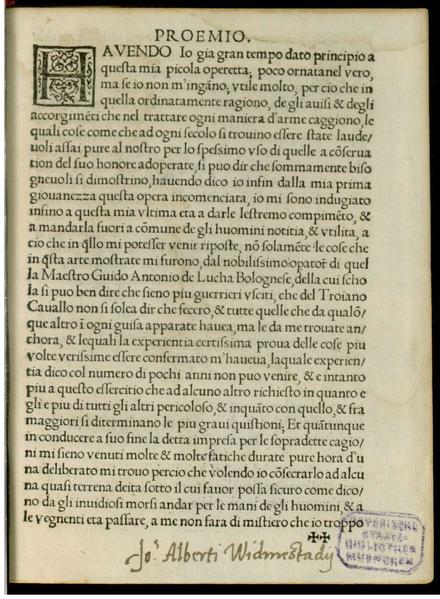 PROEMIO.
HAVENDO Io gia gran tempo dato principio a
questa mia picola operetta, poco ornata nel vero,
ma se io non m'ingãno, vtile molto, per cio che in
quella ordinatamente ragiono, de gli auisi & de gli
accorgimẽti che nel trattare ogni maniera d'arme caggiono, le
quali cose come che ad ogni secolo si trouino essere state laude/
uoli assai pure al nostro per lo spessimo vso di quelle a cõserua
tion del suo honore adoperate, si puo dir che sommamente biso
gneuoli si dimostrino, hauendo dico io infin dalla mia prima
giouanezza questa opera incomenciata, io mi sono indugiato
infino a questa mia vltima eta a darle lestremo compimẽto, &
a mandarla fuori a cõmune de gli huomini notitia, & vtilita, a
cio che in q̃llo mi potesser venir riposte, nõ solamẽte le cose che
in q̃sta arte mostrate mi furono, dal nobilissimo opator̃ di quel
la Maestro Guido Antonio de Lucha Bolognese, della cui scho
la si puo ben dire che sieno piu guerrieri vsciti, che del Troiano
Cauallo non si solea dir che fecero, & tutte quelle che da qualõ/
que altro ĩ ogni guisa apparate hauea, ma le da me trouate an/
chora, & lequali la experientia certissima proua delle cose piu
volte verissime essere confermato m'haueua, laquale experien/
tia dico col numero di pochi anni non puo venire, & e intanto
piu a questo essercitio che ad alcuno altro richiesto in quanto e
gli e piu di tutti gli altri pericoloso, & inquãto con quello, & fra
maggiori si diterminano le piu graui quistioni, Et quãtunque
in conducere a suo fine la detta impresa per le sopradette cagio/
ni mi sieno venuti molte & molte fatiche durate pure hora d'u
na deliberato mi trouo percio che volendo io cõsecrarlo ad alcu
na quasi terrena deita sotto il cui fauor possa sicuro come dico/
no da gli inuidiosi morsi andar per le mani de gli huomini, & a
le vegnenti eta passare, a me non fara di mistiero che io troppo
Jo. Alberti Widmestadij
BAYERISCHE
STAATS-
BIBLIOTHEK
MUENCHEN